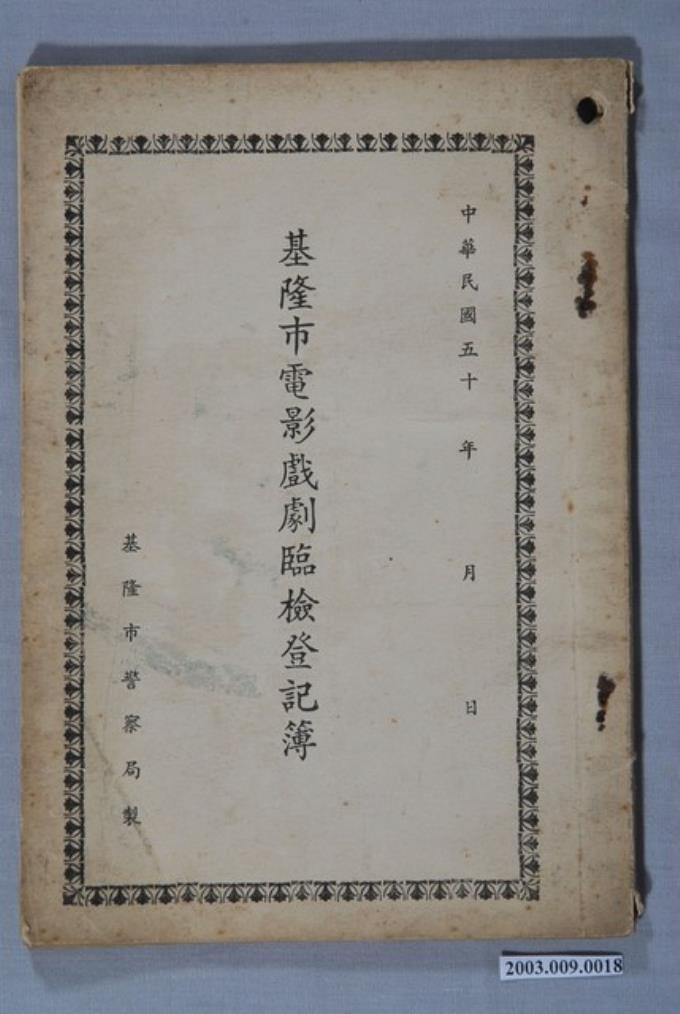 中華民國五十　年　月　日
基隆市電影戲劇臨檢登記簿
基隆市警察局製
2003.009.0018